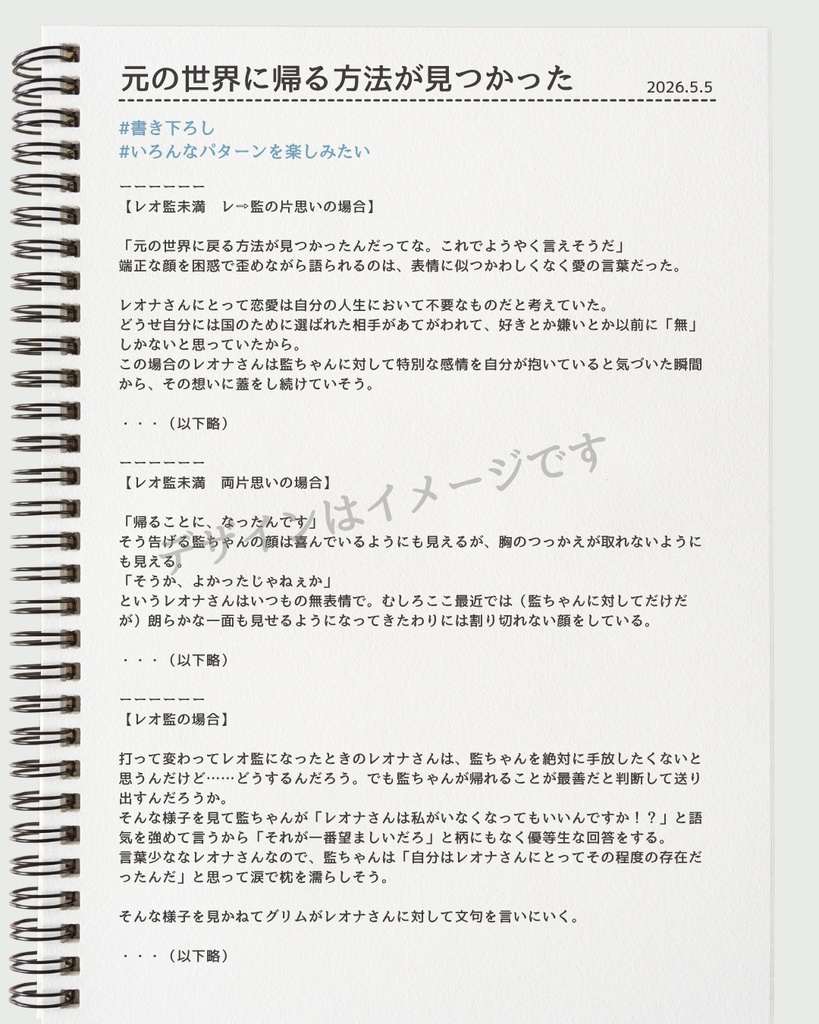 元の世界に帰る方法が見つかった
2026.5.5
#書き下ろし
#いろんなパターンを楽しみたい
ーーーーーー
【レオ監未満　レ⇨監の片思いの場合】
「元の世界に戻る方法が見つかったんだってな。これでようやく言えそうだ」
端正な顔を困惑で歪めながら語られるのは、表情に似つかわしくなく愛の言葉だった。
レオナさんにとって恋愛は自分の人生において不要なものだと考えていた。
どうせ自分には国のために選ばれた相手があてがわれて、好きとか嫌いとか以前に「無」
しかないと思っていたから。
この場合のレオナさんは監ちゃんに対して特別な感情を自分が抱いていると気づいた瞬間
から、その想いに蓋をし続けていそう。
・・・（以下略）
ーーーーーー
【レオ監未満　両片思いの場合】
「帰ることに、なったんです」
そう告げる監ちゃんの顔は喜んでいるようにも見えるが、胸のつっかえが取れないように
も見える。
「そうか、よかったじゃねぇか」
というレオナさんはいつもの無表情で。むしろここ最近では（監ちゃんに対してだけだ
が）朗らかな一面も見せるようになってきたわりには割り切れない顔をしている。
・・・（以下略）
ーーーーーー
【レオ監の場合】
打って変わってレオ監になったときのレオナさんは、監ちゃんを絶対に手放したくないと
思うんだけど……どうするんだろう。でも監ちゃんが帰れることが最善だと判断して送り
出すんだろうか。
そんな様子を見て監ちゃんが「レオナさんは私がいなくなってもいいんですか！？」と語
気を強めて言うから「それが一番望ましいだろ」と柄にもなく優等生な回答をする。
言葉少ななレオナさんなので、監ちゃんは「自分はレオナさんにとってその程度の存在だ
ったんだ」と思って涙で枕を濡らしそう。
そんな様子を見かねてグリムがレオナさんに対して文句を言いにいく。
・・・（以下略）
デザインはイメージです